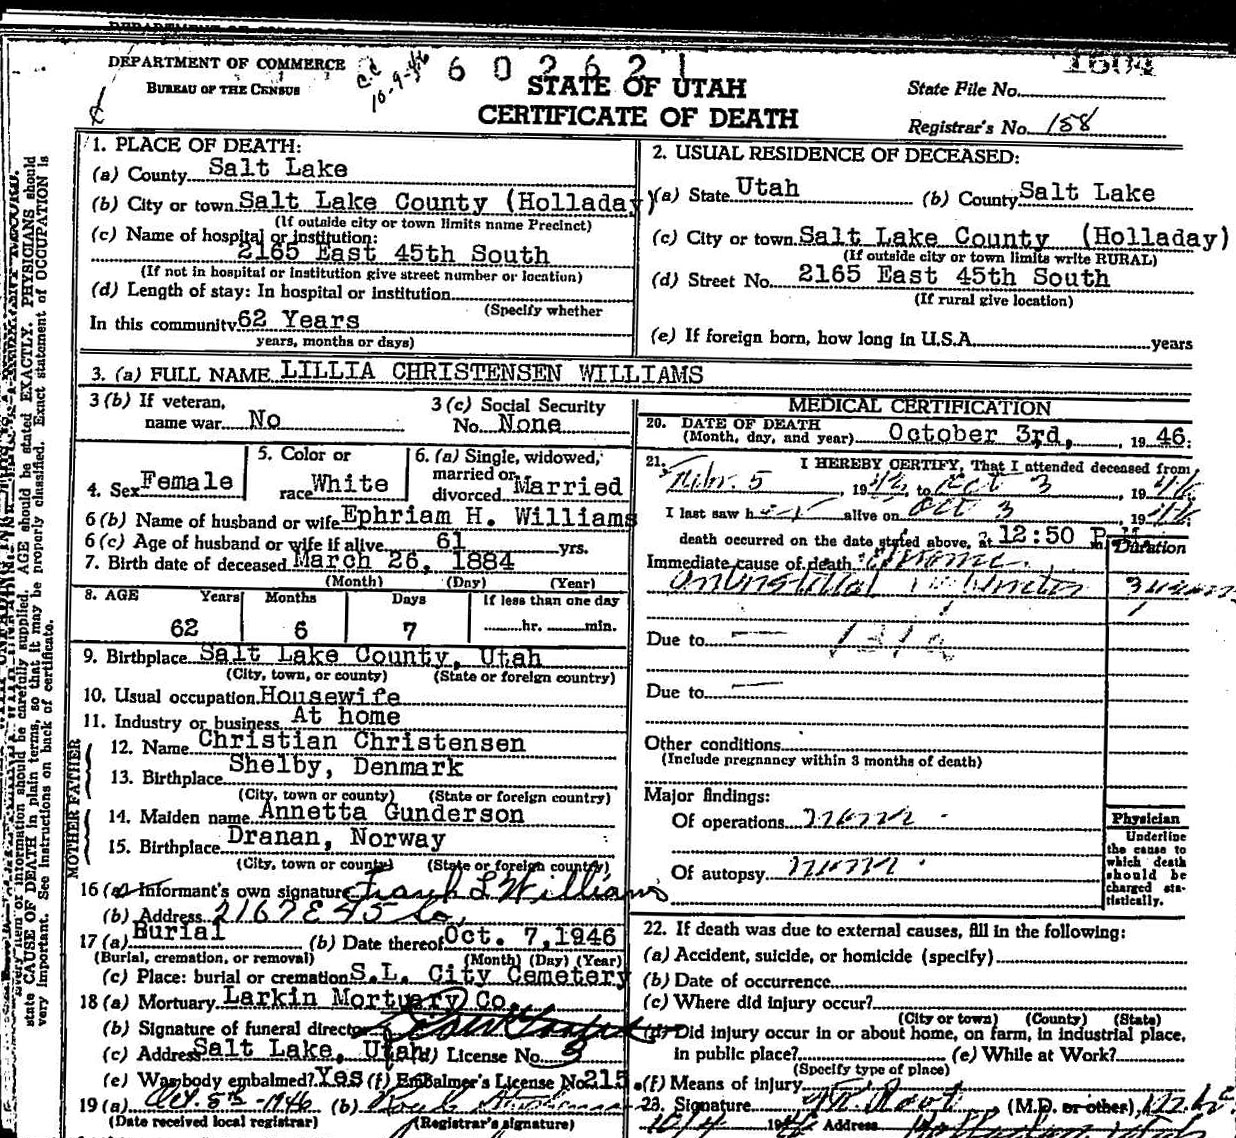 DEPARTMENT OF COMMERCE
BUREAU OF THE CENSUS
C.C
10-9-46
602621
1604
STATE OF UTAH
CERTIFICATE OF DEATH
State File No.
Registrar's No. 158
1. PLACE OF DEATH:
(a) County Salt Lake
(b) City or town Salt Lake County (Holladay)
(If outside city or town limits name Precinct)
(c) Name of hospital or institution:
2165 East 45th South
(If not in hospital or institution give street number or location)
(d) Length of stay: In hospital or institution
(Specify whether
In this community 62 Years
years, months or days)
2. USUAL RESIDENCE OF DECEASED:
(a) State Utah (b) County Salt Lake
(c) City or town Salt Lake County (Holladay)
(If outside city or town limits write RURAL)
(d) Street No. 2165 East 45th South
(If rural give location)
(e) If foreign born, how long in U.S.A. years
3. (a) FULL NAME LILLIA CHRISTENSEN WILLIAMS
3 (b) If veteran, name war No
3 (c) Social Security No. None
4. Sex Female
5. Color or race White
6. (a) Single, widowed, married or divorced Married
6 (b) Name of husband or wife Ephriam H. Williams
6 (c) Age of husband or wife if alive 61 yrs.
7. Birth date of deceased March 26, 1884
(Month) (Day) (Year)
8. AGE Years Months Days If less than one day
62 6 7 hr. min.
9. Birthplace Salt Lake County, Utah
(City, town, or county) (State or foreign country)
10. Usual occupation Housewife
11. Industry or business At home
FATHER
12. Name Christian Christensen
13. Birthplace Shelby, Denmark
(City, town or county) (State or foreign country)
MOTHER
14. Maiden name Annetta Gunderson
15. Birthplace Dranan, Norway
(City, town or county) (State or foreign country)
16 (a) Informant's own signature L Williams
(b) Address 2167 E 45 So.
17 (a) Burial (b) Date thereof Oct. 7, 1946
(Burial, cremation, or removal) (Month) (Day) (Year)
(c) Place: burial or cremation S.L. City Cemetery
18 (a) Mortuary Larkin Mortuary Co.
(b) Signature of funeral director
(c) Address Salt Lake, Utah (d) License No. 3
(e) Was body embalmed? Yes (f) Embalmer's License No. 215
19 (a) Oct. 5th-1946 (b)
(Date received local registrar) (Registrar's signature)
MEDICAL CERTIFICATION
20. DATE OF DEATH
(Month, day, and year) October 3rd, 1946.
21. I HEREBY CERTIFY, That I attended deceased from
5, 19 to Oct 3, 1946
I last saw h alive on Oct 3, 1946
death occurred on the date stated above, at 12:50 P.M.
Duration
Immediate cause of death
Due to — 131a
Due to —
Other conditions
(Include pregnancy within 3 months of death)
Major findings:
Of operations none
Of autopsy none
Physician
Underline the cause to which death should be charged statistically.
22. If death was due to external causes, fill in the following:
(a) Accident, suicide, or homicide (specify)
(b) Date of occurrence
(c) Where did injury occur?
(City or town) (County) (State)
(d) Did injury occur in or about home, on farm, in industrial place,
in public place? (e) While at Work?
(Specify type of place)
(f) Means of injury
23. Signature Root (M.D. or other) M.D.
10/4 1946 Address
state CAUSE OF DEATH in plain terms, so that it may be properly classified. Exact statement of OCCUPATION is
very important. See instructions on back of certificate.
information should be carefully supplied. AGE should be stated EXACTLY. PHYSICIANS should